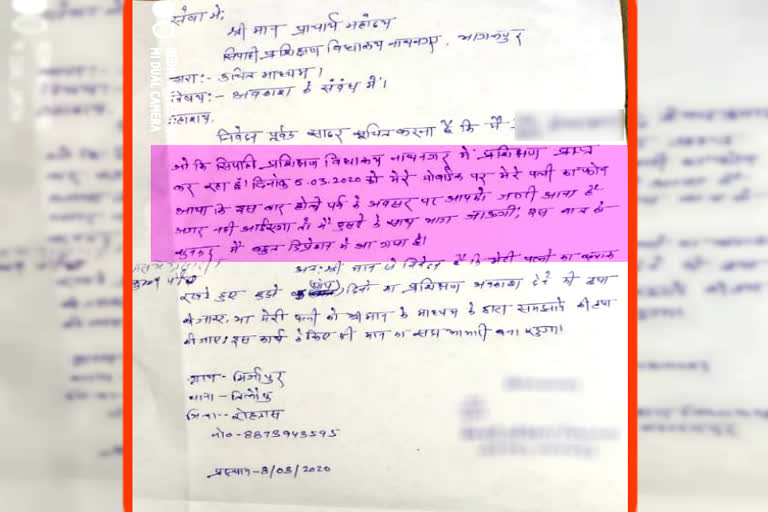 सेवा में,
श्री मान प्राचार्य महोदय
सिपाही प्रशिक्षण विद्यालय नाथनगर, भागलपुर
द्वारा:- उचित माध्यम।
विषय:- अवकाश के संबंध में।
महाशय,
निवेदन पूर्वक सादर सूचित करना है कि मैं
जो कि सिपाही प्रशिक्षण विद्यालय नाथनगर में प्रशिक्षण प्राप्त
कर रहा हूं। दिनांक 5.03.2020 को मेरे मोबाईल पर मेरे पत्नी का फोन
आया कि इस बार होली पर्व के अवसर पर आपको जरूरी आना है
अगर नहीं आईएगा तो मैं दुसरे के साथ भाग जाऊंगी, इस बात को
सुनकर मैं बहुत डिप्रेशन में आ गया हूं।
अतः श्री मान से निवेदन है कि मेरी पत्नी का
रखते हुए मुझे दिनों का प्रशिक्षण अवकाश देने की कृपा
की जाए, या मेरी पत्नी को श्रीमान के माध्यम के द्वारा समझाने की कृपा
की जाए। इस कार्य के लिए श्री मान का सदा आभारी बना रहूंगा।
ग्राम - मिर्जापुर
थाना -
जिला - रोहतास
मो०- 8873943595
प्रस्थान - 8/03/2020
MI DUAL CAMERA